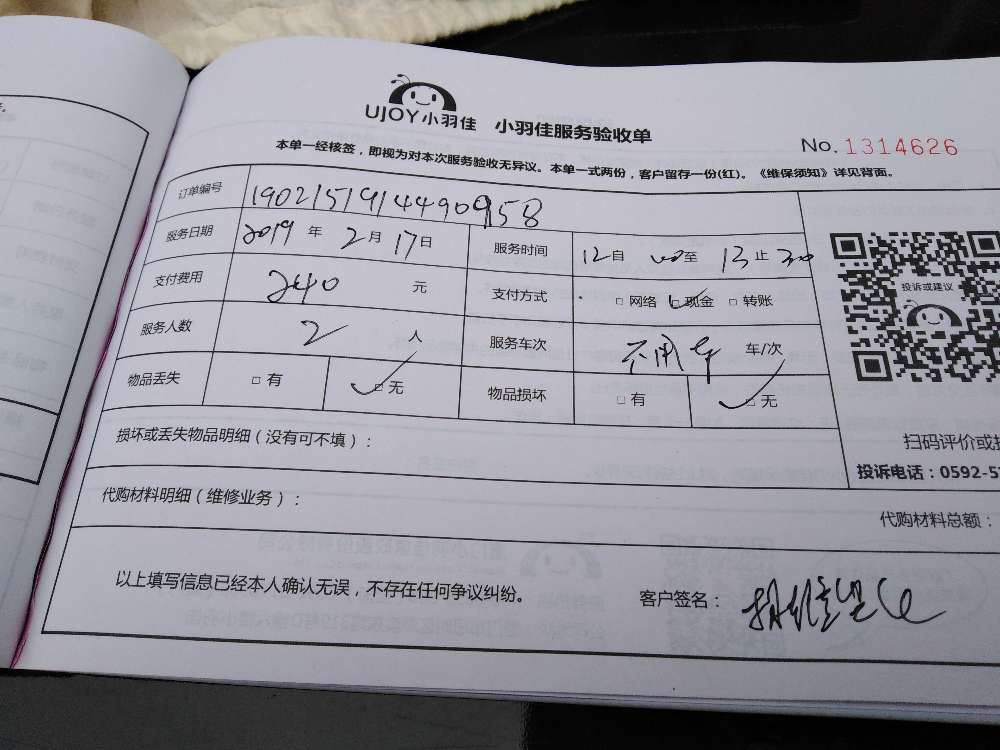 UJOY小羽佳 小羽佳服务验收单
No. 1314626
本单一经核签，即视为对本次服务验收无异议。本单一式两份，客户留存一份(红)。《维保须知》详见背面。
订单编号 1902151914490958
服务日期 2019 年 2 月 17 日 服务时间 12 自 00 至 13 止 30
投诉或建议
支付费用 240 元 支付方式 □ 网络 □ 现金 □ 转账
服务人数 2 人 服务车次 不用车 车/次
物品丢失 □ 有 □ 无 物品损坏 □ 有 □ 无
损坏或丢失物品明细（没有可不填）：
扫码评价或
投诉电话：0592-5
代购材料明细（维修业务）：
代购材料总额：
以上填写信息已经本人确认无误，不存在任何争议纠纷。
客户签名：